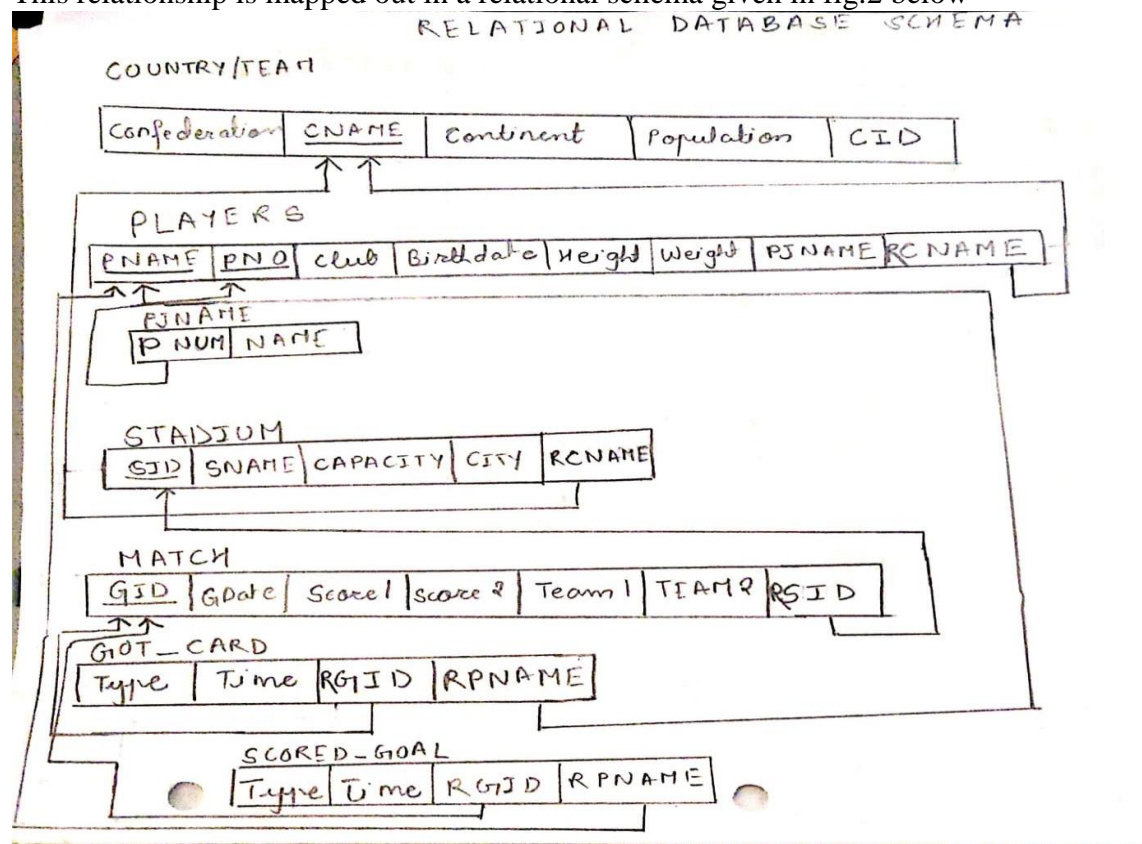 This relationship is mapped out in a relational schema given in fig.2 below
RELATIONAL DATABASE SCHEMA
COUNTRY/TEAM
Confederation CNAME Continent Population CID
PLAYERS
PNAME PNO Club Birthdate Height Weight PJNAME RCNAME
PJNAME
PNUM NAME
STADIUM
SID SNAME CAPACITY CITY RCNAME
MATCH
GID GDate Score1 Score2 Team1 TEAM2 RSID
GOT_CARD
Type Time RGID RPNAME
SCORED_GOAL
Type Time RGID RPNAME